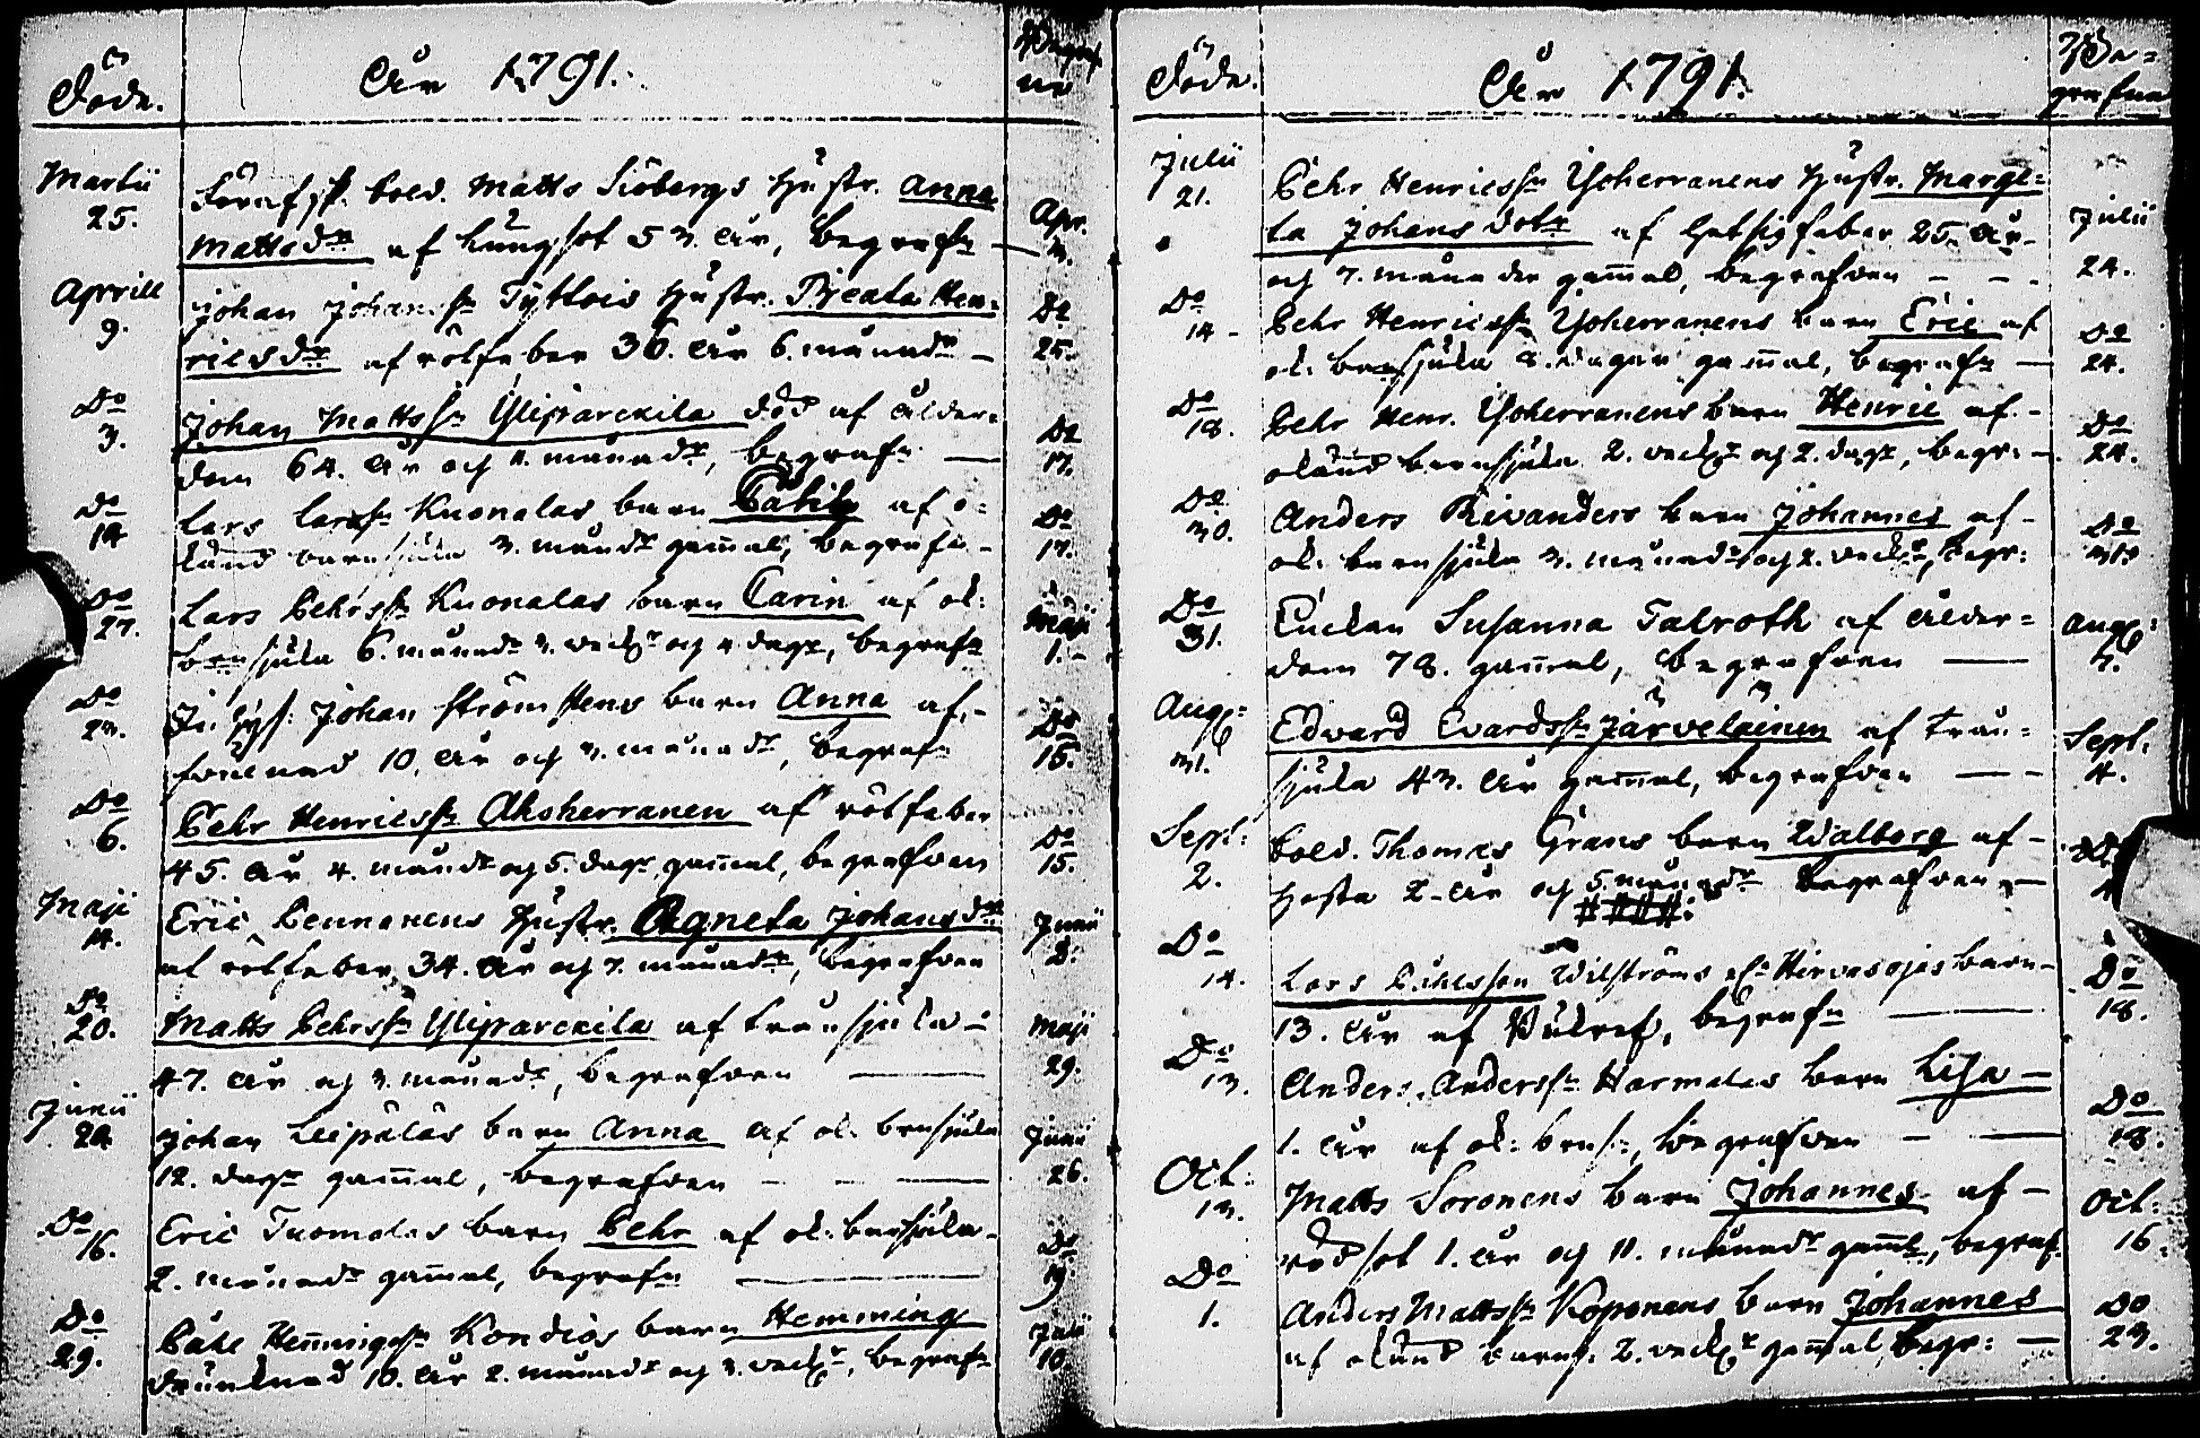 Döde.
År 1791.
Begraf
ne
Martii
25.
Förafsk. Sold. Matts Siöbergs Hustr. Anna
Mattsdr af lungsot 53. År, begrafn
Apr.
3.
Aprill
9.
Johan Johanssn Tyttois Hustr. Beata Hen-
ricsdr af rötfeber 36. År 6. månadr
Do
25.
Do
3.
Johan Mattssn Ylipärckilä död af ålder-
dom 64. År och 11. månadr, begrafn
Do
17.
Do
14
Lars Larssn Kuonalas barn af o-
känd barnsjuka 3. månadr gammal, begrafn
Do
17.
Do
27.
Lars Pehrssn Kuonalas barn Carin af ok:
barnsjuka 6. månadr 3. veckr och 4 dagr, begrafn
Maji
1.
Do
23.
Johan Strömstens barn Anna af
10. År och 3. månadr, begrafn
Do
15.
Do
6.
Pehr Henricssn Ahoherranen af rötfeber
45. År 4. månadr och 5. dagr gammal, begrafven
Do
15.
Maji
14.
Eric Pennanens Hustr. Agneta Johansdr
af rötfeber 34. År och 7. månadr, begrafven
Junii
2.
Do
20.
Matts Pehrssn Ylipärckilä af tränsjuka
47. År och 3. månadr, begrafven
Maji
29.
Junii
24
Johan Leipäläs barn Anna af ok. barnsjuka
12. dagr gammal, begrafven
Junii
26.
Do
16.
Eric Tuomalas barn Pehr af ok: barnsjuka
2. månadr gammal, begrafn
Do
19
Do
29.
Påhl Hemmingssn Kondias barn Hemming
drunknad 10. År 2. månadr och 3. veckr, begrafn
Juli
10.
Döde.
År 1791.
Be-
grafne
Julii
21.
Pehr Henricssn Yoherranens Hustr. Marge-
ta Johans dotr af hetsig feber 25. År
och 7. månader gammal, begrafven
Julii
24.
Do
14
Pehr Henricssn Yoherranens barn Eric af
ok. barnsjuka 8. dagar gammal, begrafn
Do
24.
Do
18.
Pehr Henr. Yoherranens barn Henric af
okänd barnsjuka 2. veckr och 2. dagr, begr:
Do
24.
Do
30.
Anders Rivanders barn Johannes af
ok: barnsjuka 3. månadr och 2. veckr, begr:
Do
31.
Do
31.
Enckan Susanna Talroth af ålder-
dom 78. gammal, begrafven
Aug:
7.
Aug:
31.
Edvard Evardssn Järveläinen af trån-
sjuka 43. År gammal, begrafven
Sept:
4.
Sept:
2.
Sold. Thomas Grans barn Walborg af
hosta 2. År och 5. månadr begrafven
Do
4
Do
14.
Lars Wilströms Hirvasojas barn
13. År af, begrafn
Do
18.
Do
13.
Anders Anderssn Harmalas barn Lisa
1. År af ok: barns:, begrafven
Do
18.
Oct:
13.
Matts Soronens barn Johannes af
rödsot 1. År och 11. månadr gaml, begraf
Oct:
16.
Do
1.
Anders Mattssn Koponens barn Johannes
af okänd barns. 2. veckr gammal, begr:
Do
23.